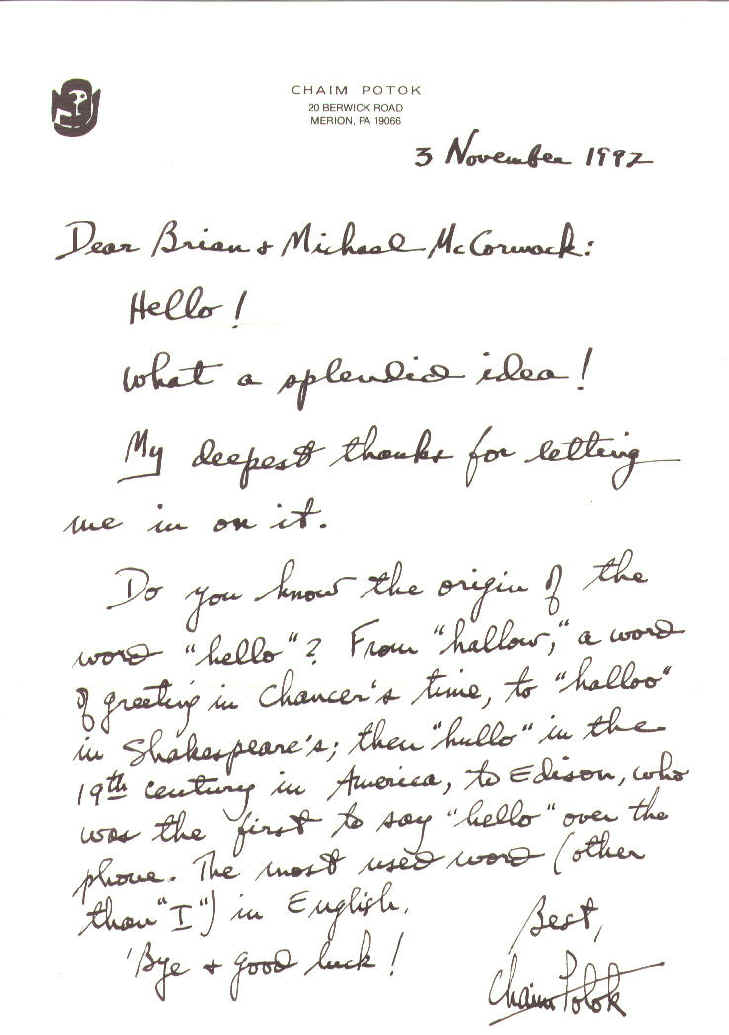 CHAIM POTOK
20 BERWICK ROAD
MERION, PA 19066
3 November 1992
Dear Brian & Michael McCormack:
Hello!
What a splendid idea!
My deepest thanks for letting
me in on it.
Do you know the origin of the
word "hello"? From "hallow," a word
of greeting in Chaucer's time, to "halloo"
in Shakespeare's; then "hullo" in the
19th century in America, to Edison, who
was the first to say "hello" over the
phone. The most used word (other
than "I") in English.
'Bye & good luck!
Best,
Chaim Potok